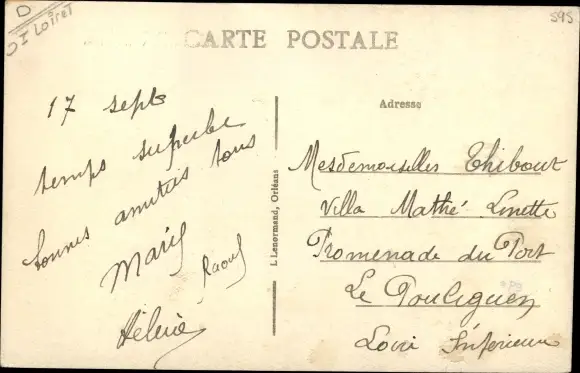 D
DI Loiret
595
CARTE POSTALE
17 sept
temps superbe
bonnes amitiés tous
Marie
Raoul
Hélène
L. Lenormand, Orléans
Adresse
Mesdemoiselles Thibout
Villa Mathé Linette
Promenade du Port
Le Pouliguen
Loire Inférieure